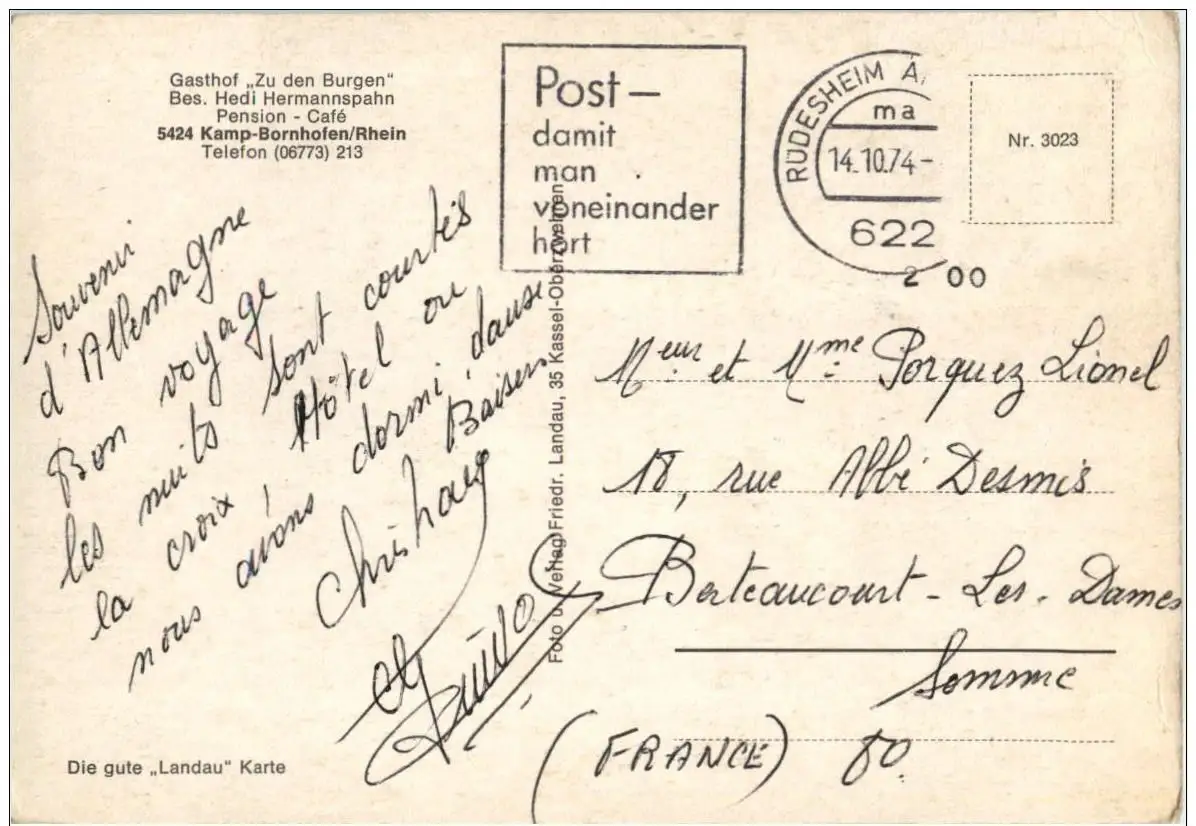 Gasthof „Zu den Burgen“
Bes. Hedi Hermannspahn
Pension - Café
5424 Kamp-Bornhofen/Rhein
Telefon (06773) 213
Post –
damit
man
voneinander
hört
RÜDESHEIM A
ma
14.10.74-
622
2 00
Nr. 3023
Souvenir
d'Allemagne
Bon voyage
les nuits sont courtes
la croix Hôtel ou
nous avons dormi, danse
Baisers
et
Foto u. Verlag Friedr. Landau, 35 Kassel-Oberzwehren
Meur et Mme Porquez Lionel
18, rue Abbé Desmis
Berteaucourt - Les - Dames
Somme
(FRANCE) 80
Die gute „Landau“ Karte